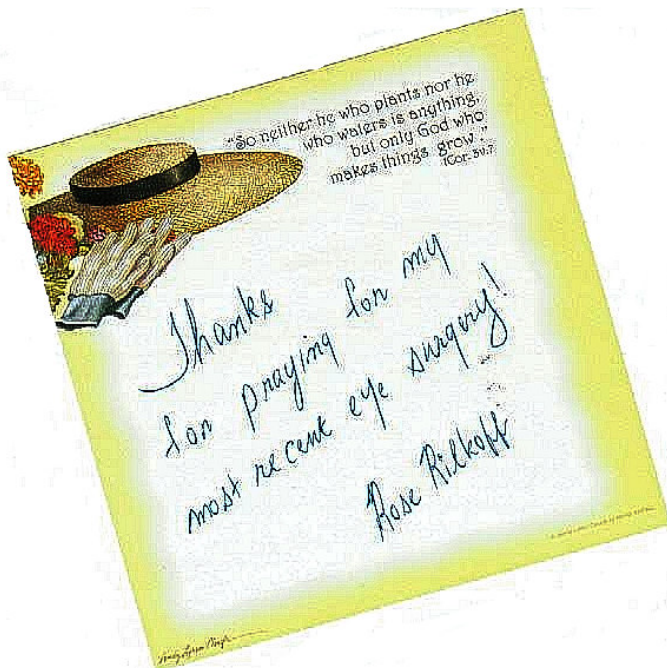 "So neither he who plants nor he
who waters is anything,
but only God who
makes things grow."
1Cor. 3v.7
Thanks
for praying for my
most recent eye surgery!
Rose Rilkoff